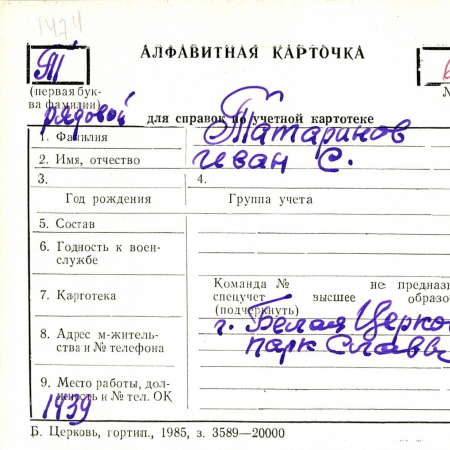 1474
Т
АЛФАВИТНАЯ КАРТОЧКА
(первая бук-
ва фамилии)
рядовой
для справок по учетной картотеке
1. Фамилия Татаринов
2. Имя, отчество Иван С.
3. 4.
Год рождения Группа учета
5. Состав
6. Годность к воен-
службе
7. Картотека
Команда № не предназ
спецучет высшее образо
(подчеркнуть)
8. Адрес м-житель-
ства и № телефона
г. Белая Церко
парк Славы
9. Место работы, дол-
жность и № тел. ОК
1939
Б. Церковь, гортип., 1985, з. 3589—20000